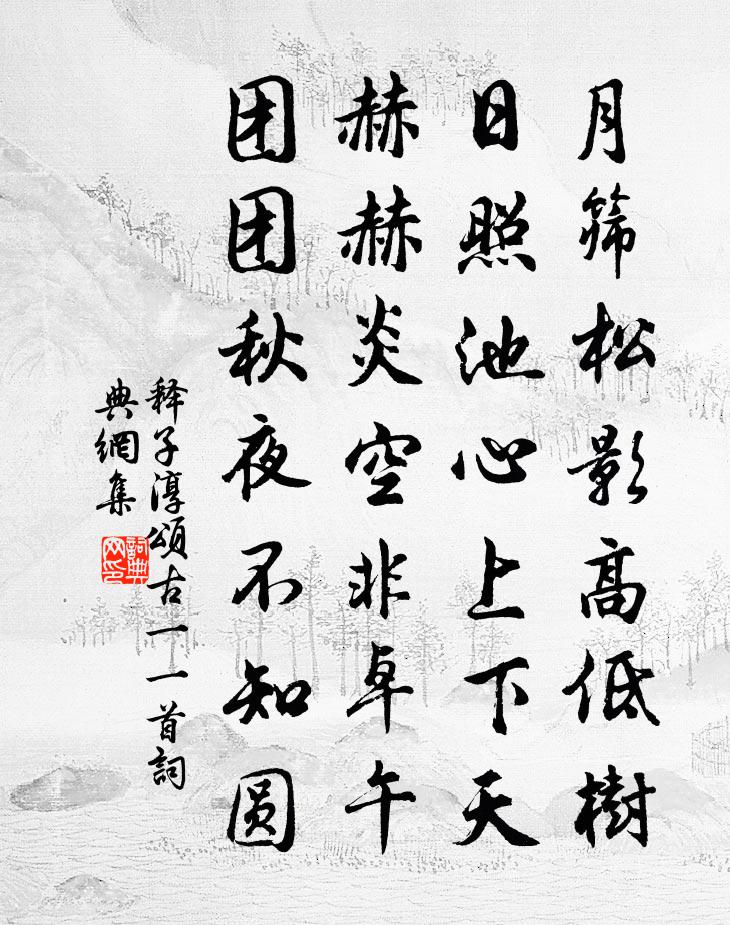 月筛松影高低树
日照池心上下天
赫赫炎空非卓午
团团秋夜不知圆
释子淳颂古一一首词
典網集
詞典网印